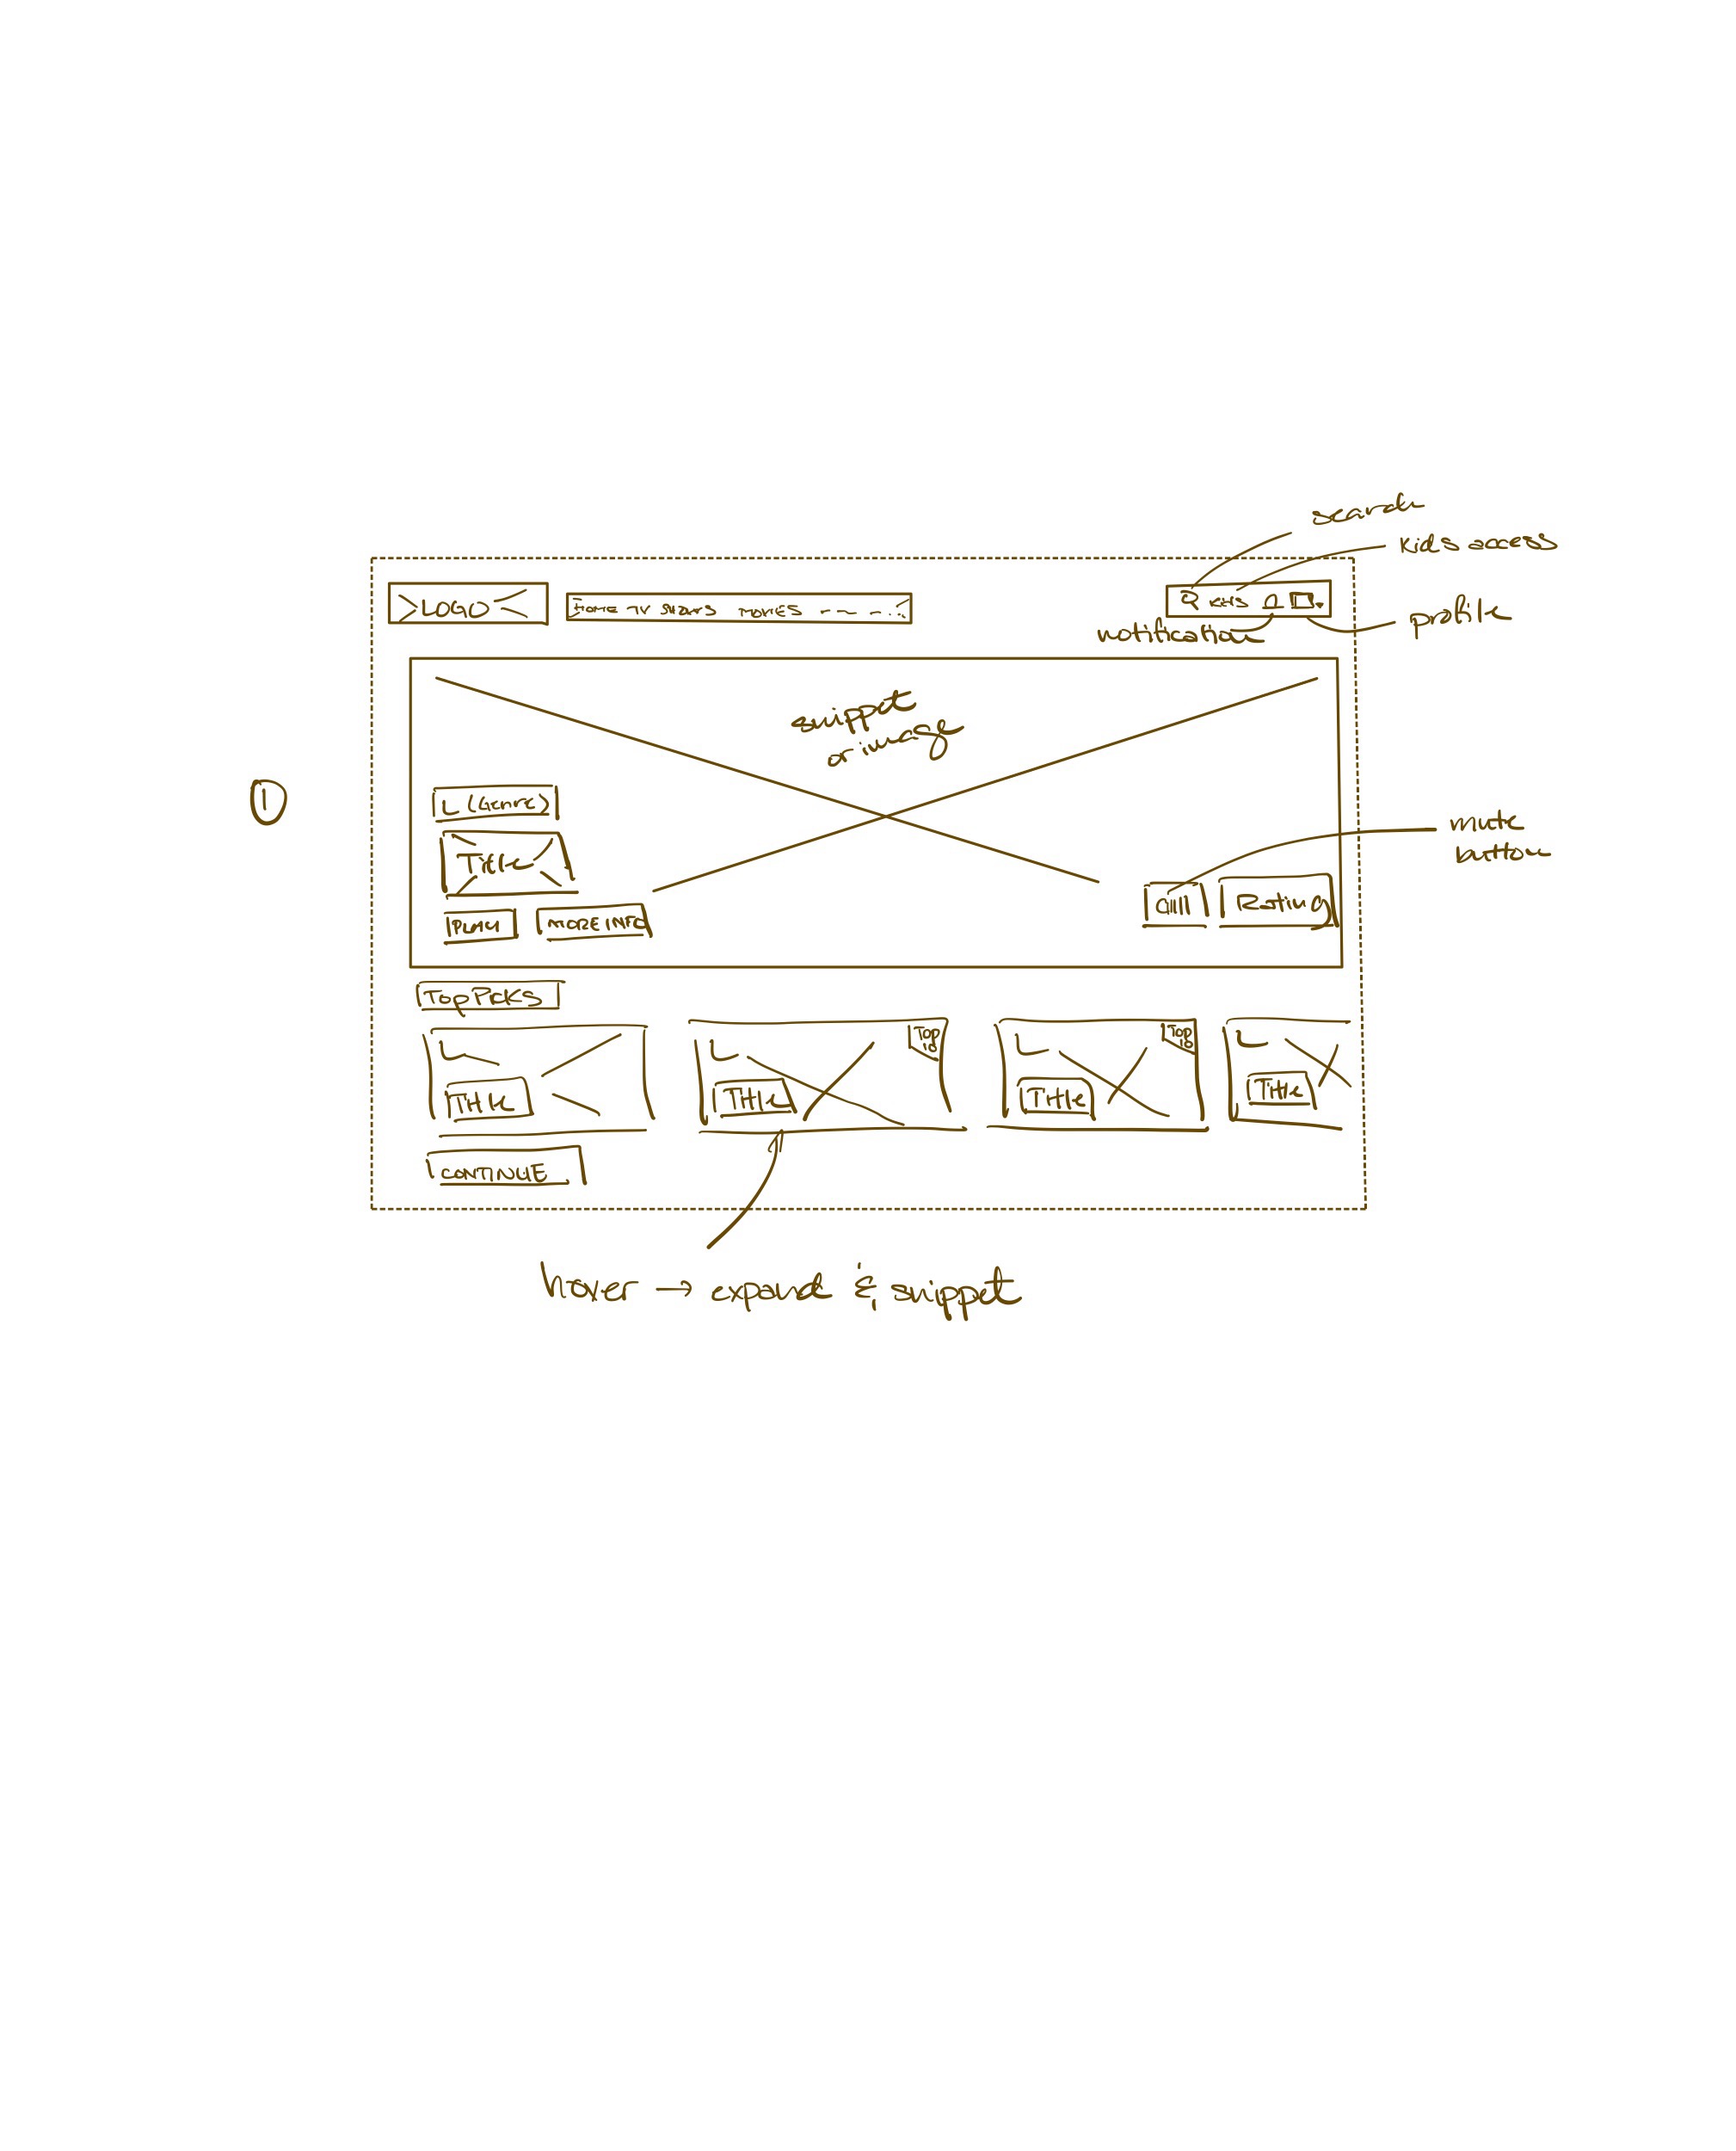 search
Kids access
LOGO
HOME TV SHOWS MOVIES
KIDS
notification
profile
snippet
or image
①
L (Genre)
Title
PLAY
MORE INFO
Rating
mute
button
TOP PICKS
L
Title
L
TOP
10
Title
L
TOP
10
Title
L
Title
CONTINUE
hover → expand & snippet